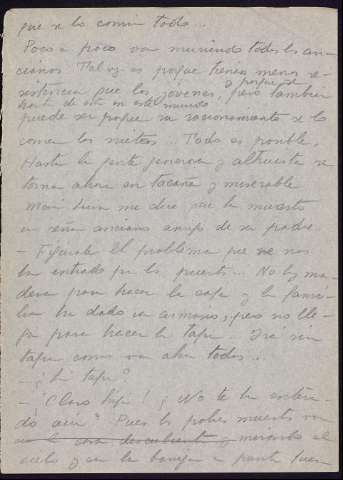 que se lo comía todo...
Poco a poco van muriendo todos los an-
cianos. Tal vez es porque tienen menos re-
sistencia que los jovenes, o porque se
hartan de estar en este mundo pero también
puede ser porque su racionamiento se lo
comen los nietos... Todo es posible.
Hasta la gente generosa y altruista se
torna ahora en tacaña y miserable
me dice que ha muerto
un señor anciano amigo de su padre.
- Figúrate el problema que se nos
ha entrado por la puerta... No hay ma-
dera para hacer la caja y la fami-
lia ha dado un armario, pero no lle-
ga para hacer la tapa. Irá sin
tapa como van ahora todos...
- ¿Sin tapa?
- ¡Claro hija! ¿No te has entera-
do aún? Pues los pobres muertos van
con la cara descubierta y mirando al
cielo y con la barriga